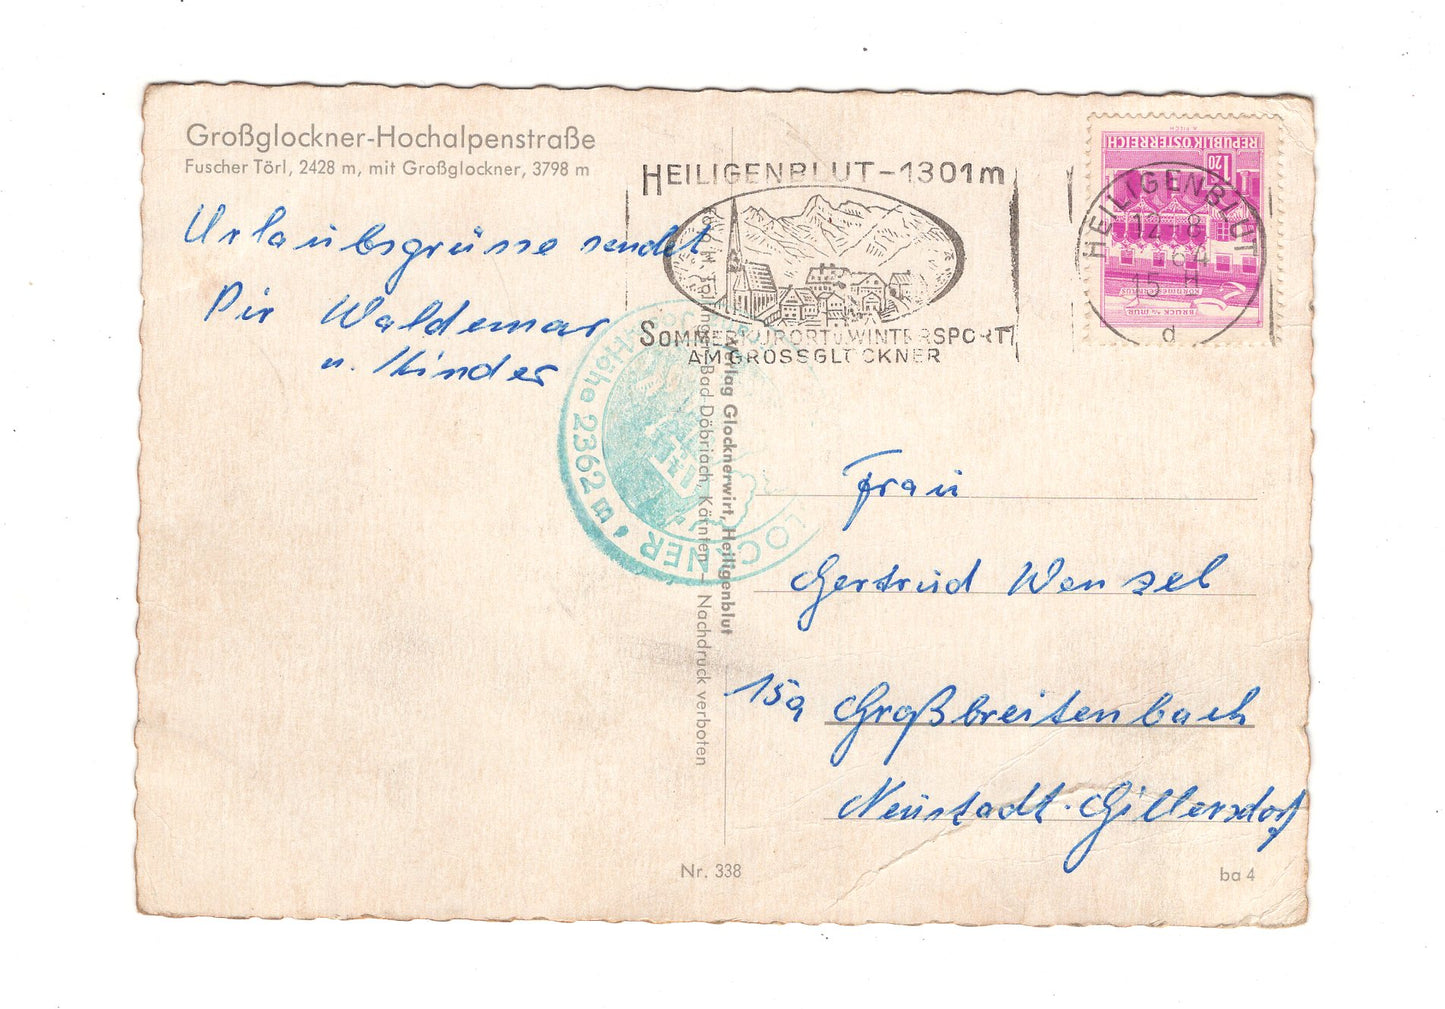 Großglockner-Hochalpenstraße
Fuscher Törl, 2428 m, mit Großglockner, 3798 m
Urlaubsgrüsse sendet
Dir Waldemar
u. Kinder
HEILIGENBLUT-1301m
SOMMERKURORT U. WINTERSPORT
AM GROSSGLOCKNER
REPUBLIK ÖSTERREICH
1.20
BRUCK a/d MUR
KORNMESSERHAUS
A. PILCH
HEILIGENBLUT
12-8
64
15 H
d
Höhe 2362 m
Verlag Glocknerwirt, Heiligenblut
Bad-Döbriach, Kärnten – Nachdruck verboten
Frau
Gertrud Wenzel
15a Großbreitenbach
Neustadt-Gillersdorf
Nr. 338
ba 4